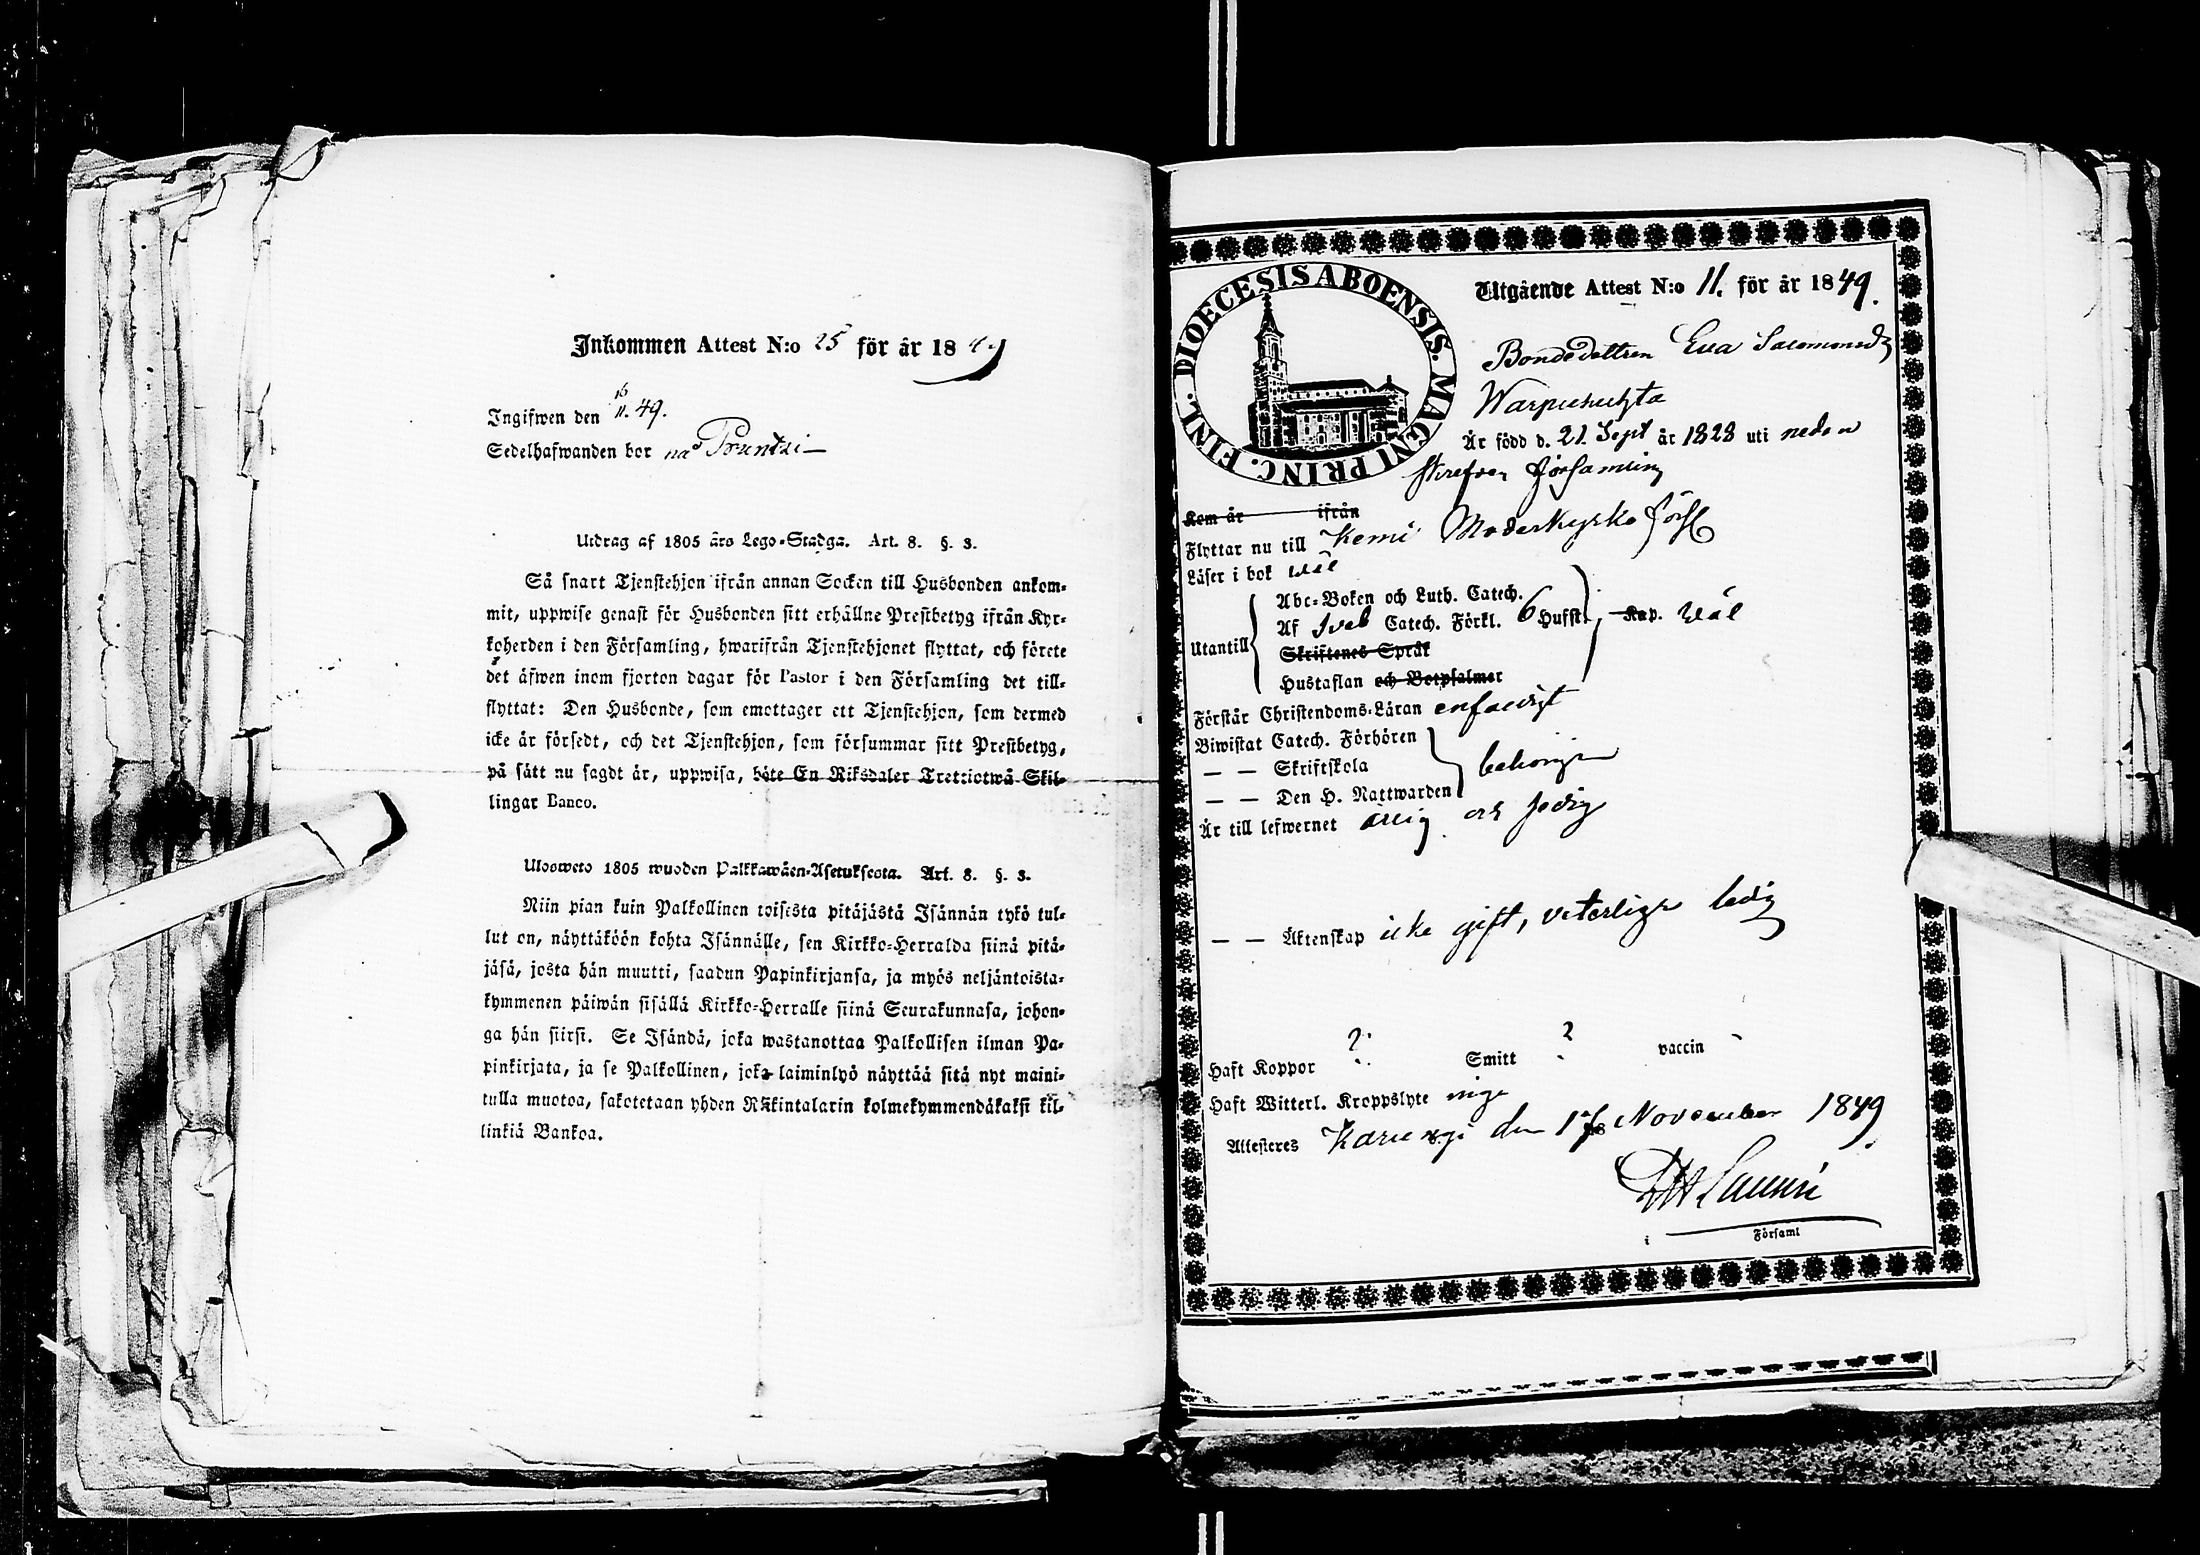 Inkommen Attest N:o 25 för år 1849
Ingifwen den 16/11. 49.
Sedelhafwanden bor på Pruntsi
Utdrag af 1805 års Lego-Stadga. Art. 8. §. 3.
Så snart Tjenstehjon ifrån annan Socken till Husbonden ankom-
mit, uppwise genast för Husbonden sitt erhållne Prestbetyg ifrån Kyr-
koherden i den Församling, hwarifrån Tjenstehjonet flyttat, och förete
det äfwen inom fjorton dagar för Pastor i den Församling det till-
flyttat: Den Husbonde, som emottager ett Tjenstehjon, som dermed
icke är försedt, och det Tjenstehjon, som försummar sitt Prestbetyg,
på sätt nu sagdt är, uppwisa, böte En Riksdaler Trettiotwå Skil-
lingar Banco.
Ulosweto 1805 wuoden Palkkawäen-Asetuksesta. Art. 8. §. 3.
Niin pian kuin Palkollinen toisesta pitäjästä Isännän tykö tul-
lut on, näyttäköön kohta Isännälle, sen Kirkko-Herralda siinä pitä-
jäsä, josta hän muutti, saadun Papinkirjansa, ja myös neljäntoista-
kymmenen päiwän sisällä Kirkko-Herralle siinä Seurakunnasa, johon-
ga hän siirsi. Se Isändä, joka wastanottaa Palkollisen ilman Pa-
pinkirjata, ja se Palkollinen, joka laiminlyö näyttää sitä nyt maini-
tulla muotoa, sakotetaan yhden Riikintalarin kolmekymmendäkaksi kil-
linkiä Bankoa.
FINL. DIOECESIS ABOENSIS. MAGNI PRINC.
Utgående Attest N:o 11. för år 1849.
Bondedottren Eva Salomonsdr
Är född d. 21. Sept år 1828 uti nedan
skrefven församling
Kom år ifrån
Flyttar nu till Kemi Moderkyrko förs
Läser i bok wäl
Utantill
Abc-Boken och Luth. Catech.
Af Sveb Catech. Förkl. 6 Hufst. Kap. wäl
Skriftenes Språk
Hustaflan och Botpsalmer
Förstår Christendoms-Läran enfaldigt
Biwistat Catech. Förhören
— — Skriftskola behörigen
— — Den H. Nattwarden
Är till lefwernet ärlig och sedig
— — Äktenskap icke gift, veterligen ledig
Haft Koppor ? Smitt ? vaccin
Haft Witterl. Kroppslyte inga
Attesteres Karungi den 17 November 1849
i Församl